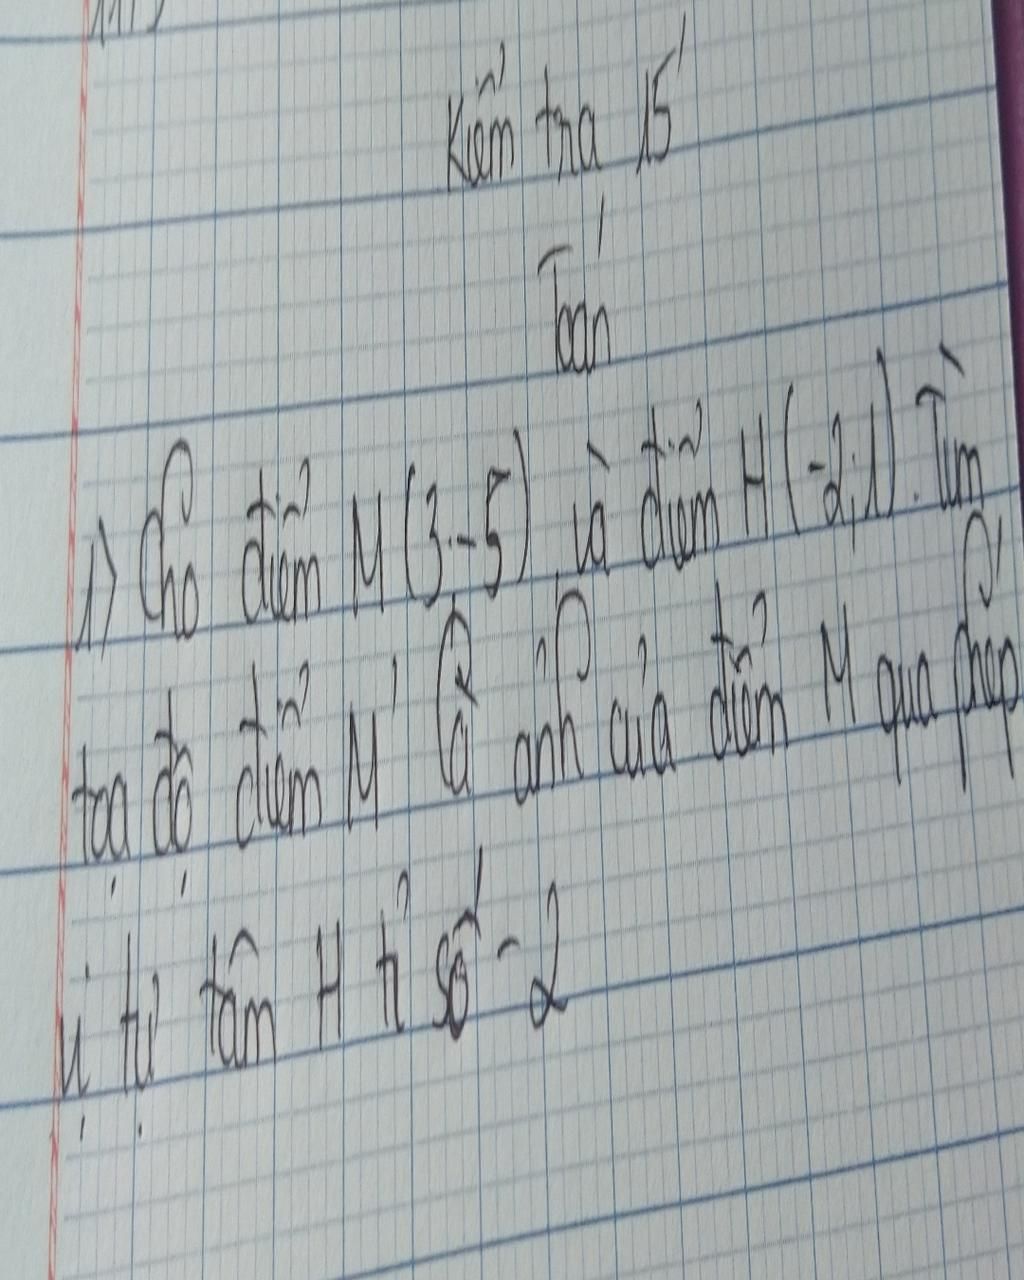 Kiểm tra 15'
Toán
1) Cho điểm M(3;-5) và điểm H(-2;1). Tìm
toạ độ điểm M' là ảnh của điểm M qua phép
vị tự tâm H tỉ số -2